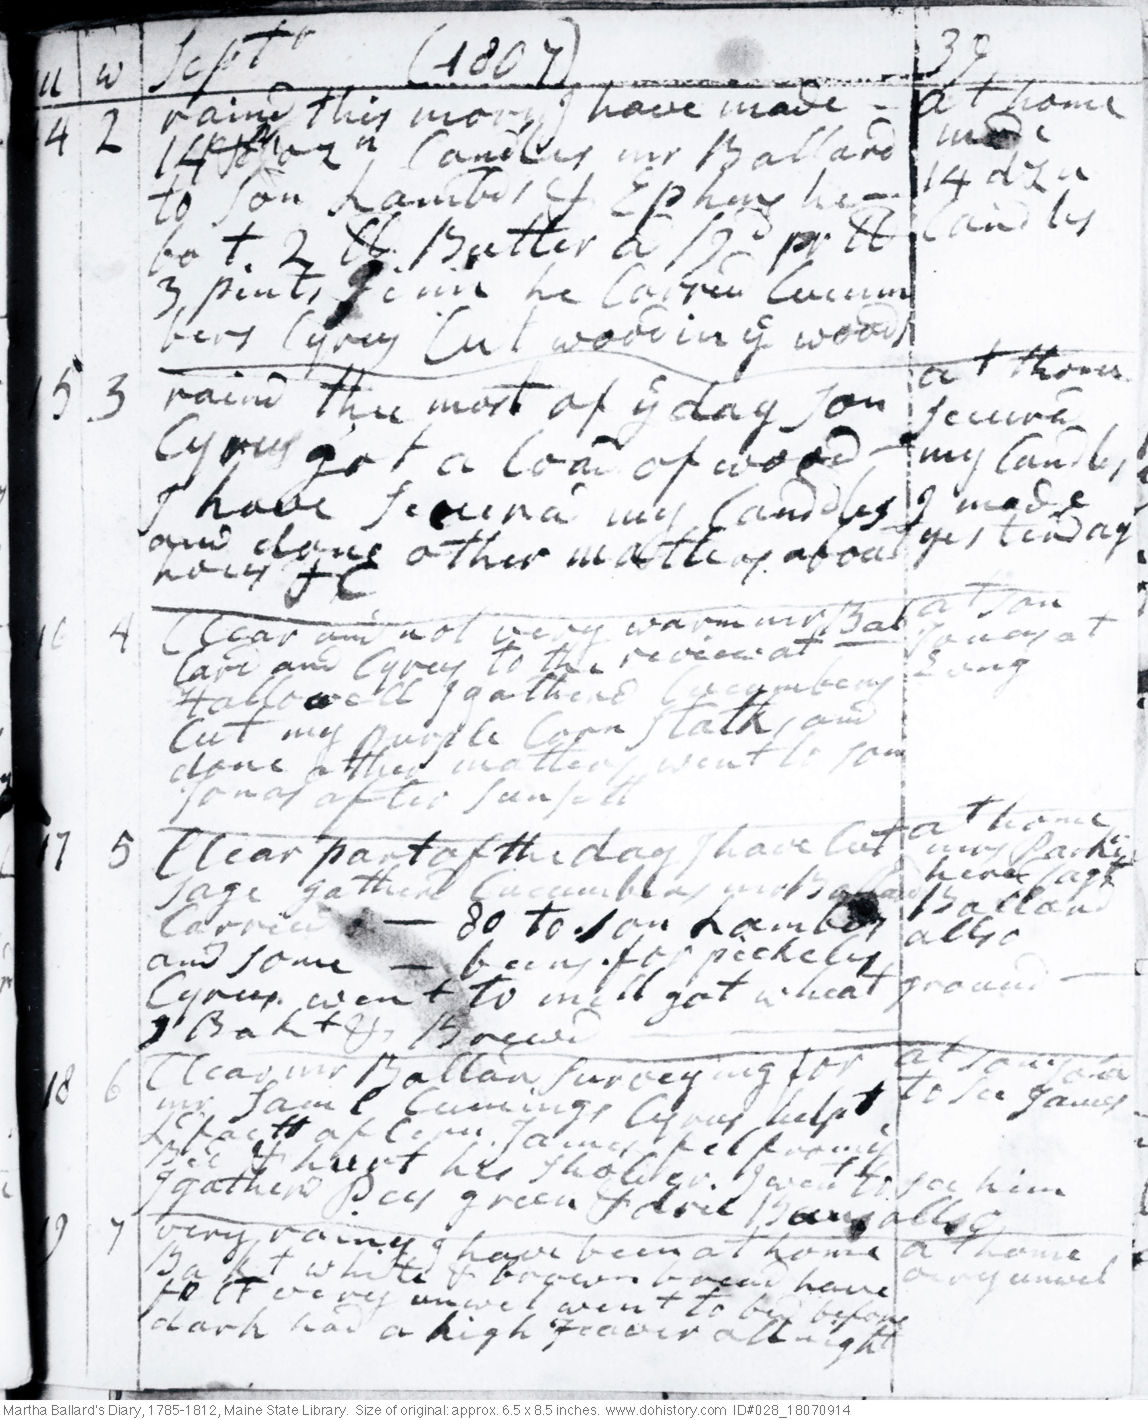 m w Septr (1807) 39
14 2 raind this morng I have made - at home
14 dozn Candles mr Ballard made
to Son Lambds & Ephms he - 14 dzn
bot 2 lb Butter a pr lb Candles
3 pints Ginn he Carried Cucum
bers Cyrus Cut wood in ye woods
15 3 raind thee most of ye day Son at home
Cyrus got a load of wood - secured
I have secured my Candles my Candles
and done other matters about I made
hous &C yesterday
16 4 Clear and not very warm mr Bal at son
lard and Cyrus to the review at Jonas at
Hallowell I gatherd Cucumbers Evng
Cut my purple Corn Stalks, and
done other matters, went to son
Jonas after sunsett
17 5 Clear part of the day I have Cut at home
sage gatherd Cucumbers mr Ballard mrs Parkir
Carried - 80 to son Lambds here
and some - beens for pickels Ballard
Cyrus went to mill got wheat ground - allso
I Bakt & Brewd
18 6 Clear mr Ballard surveying for at
mr Saml Cumings Cyrus helpt to see James
of Corn. James fel from
& hurt his sholder. I went to see him
I gatherd Pees green & dril Beens allso
19 7 very rainy I have been at home at home
Bakt white & brown bread have very unwel
felt very unwel went to bed before
dark had a high Feaver all night
Martha Ballard's Diary, 1785-1812, Maine State Library. Size of original: approx. 6.5 x 8.5 inches. www.dohistory.com ID#028_18070914